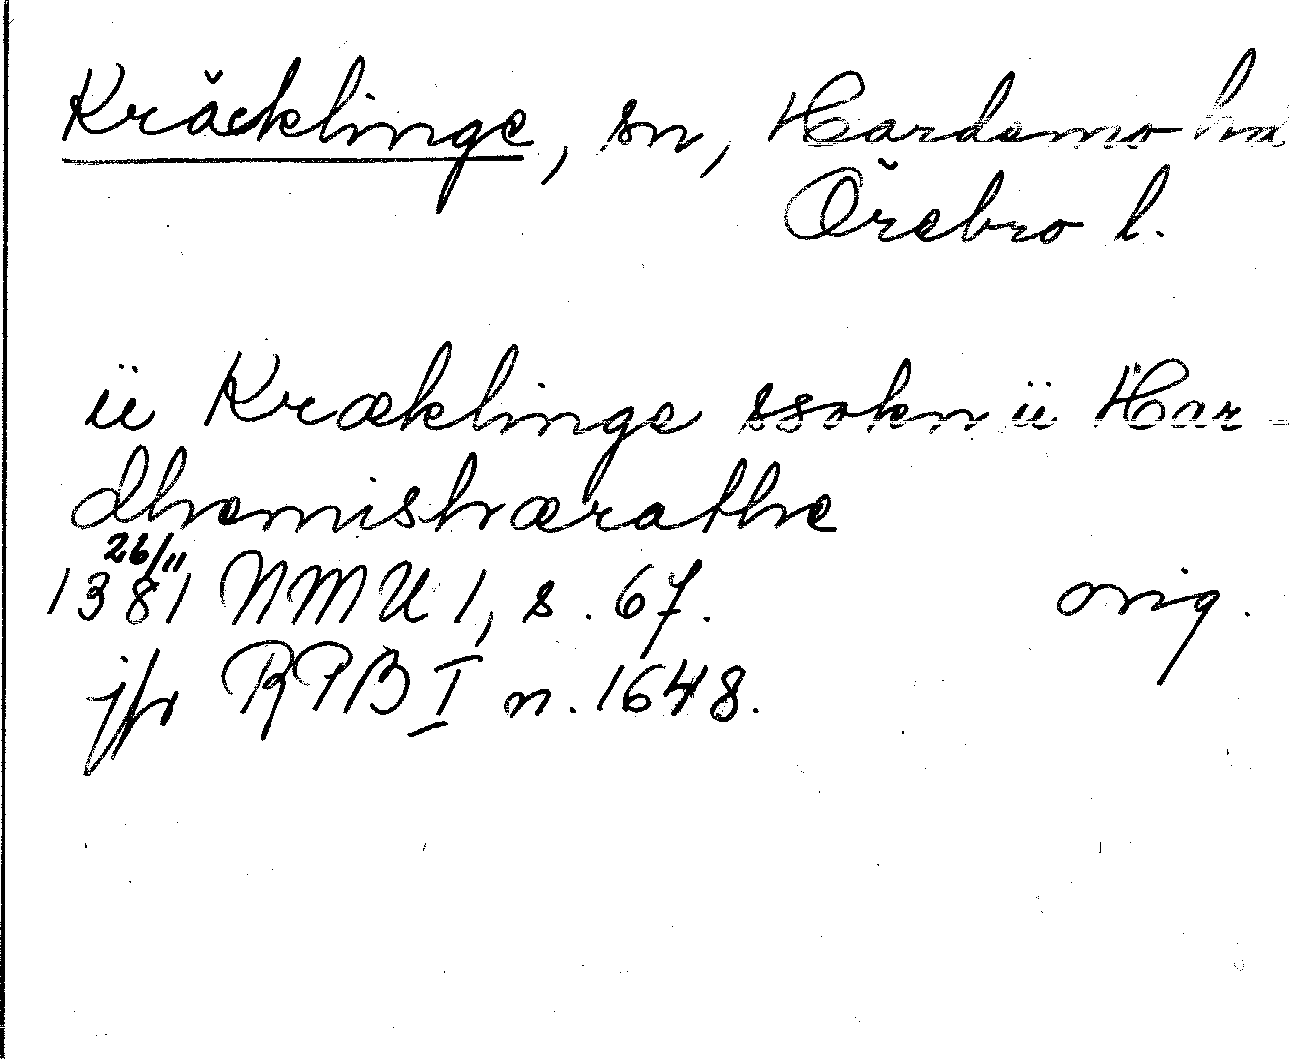 Kräcklinge, sn, Hardemo hd
Örebro l.
ii Kræklinge ssokn ii Har-
dhemishærathe
26/11
1381 NMU 1, s. 67. orig.
jfr RPB I n. 1648.